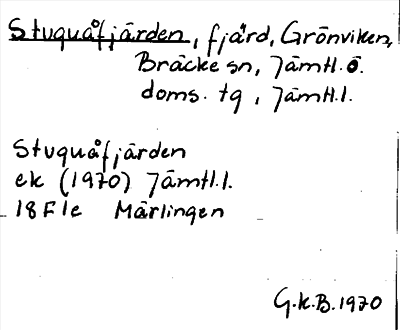 Stuguåfjärden, fjärd, Grönviken,
Bräcke sn, Jämtl. ö.
doms. tg, Jämtl.l.
Stuguåfjärden
ek (1970) Jämtl.l.
18F1e Märlingen
G.K.B. 1970